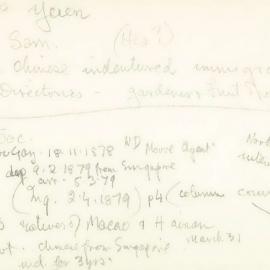 Yuen
Sam.
Chinese indentured immigra
Directories - gardeners fruit
Soc.
Gaz. 18.11.1878 ND Moore Agent
dep 9.2.1879 from Singapore
arr. 5.3.79
(mg. 2.4.1879) p4 (column
natives of Macao & Hainan
Chinese from Singapore March 31
ind. for 3 yrs.